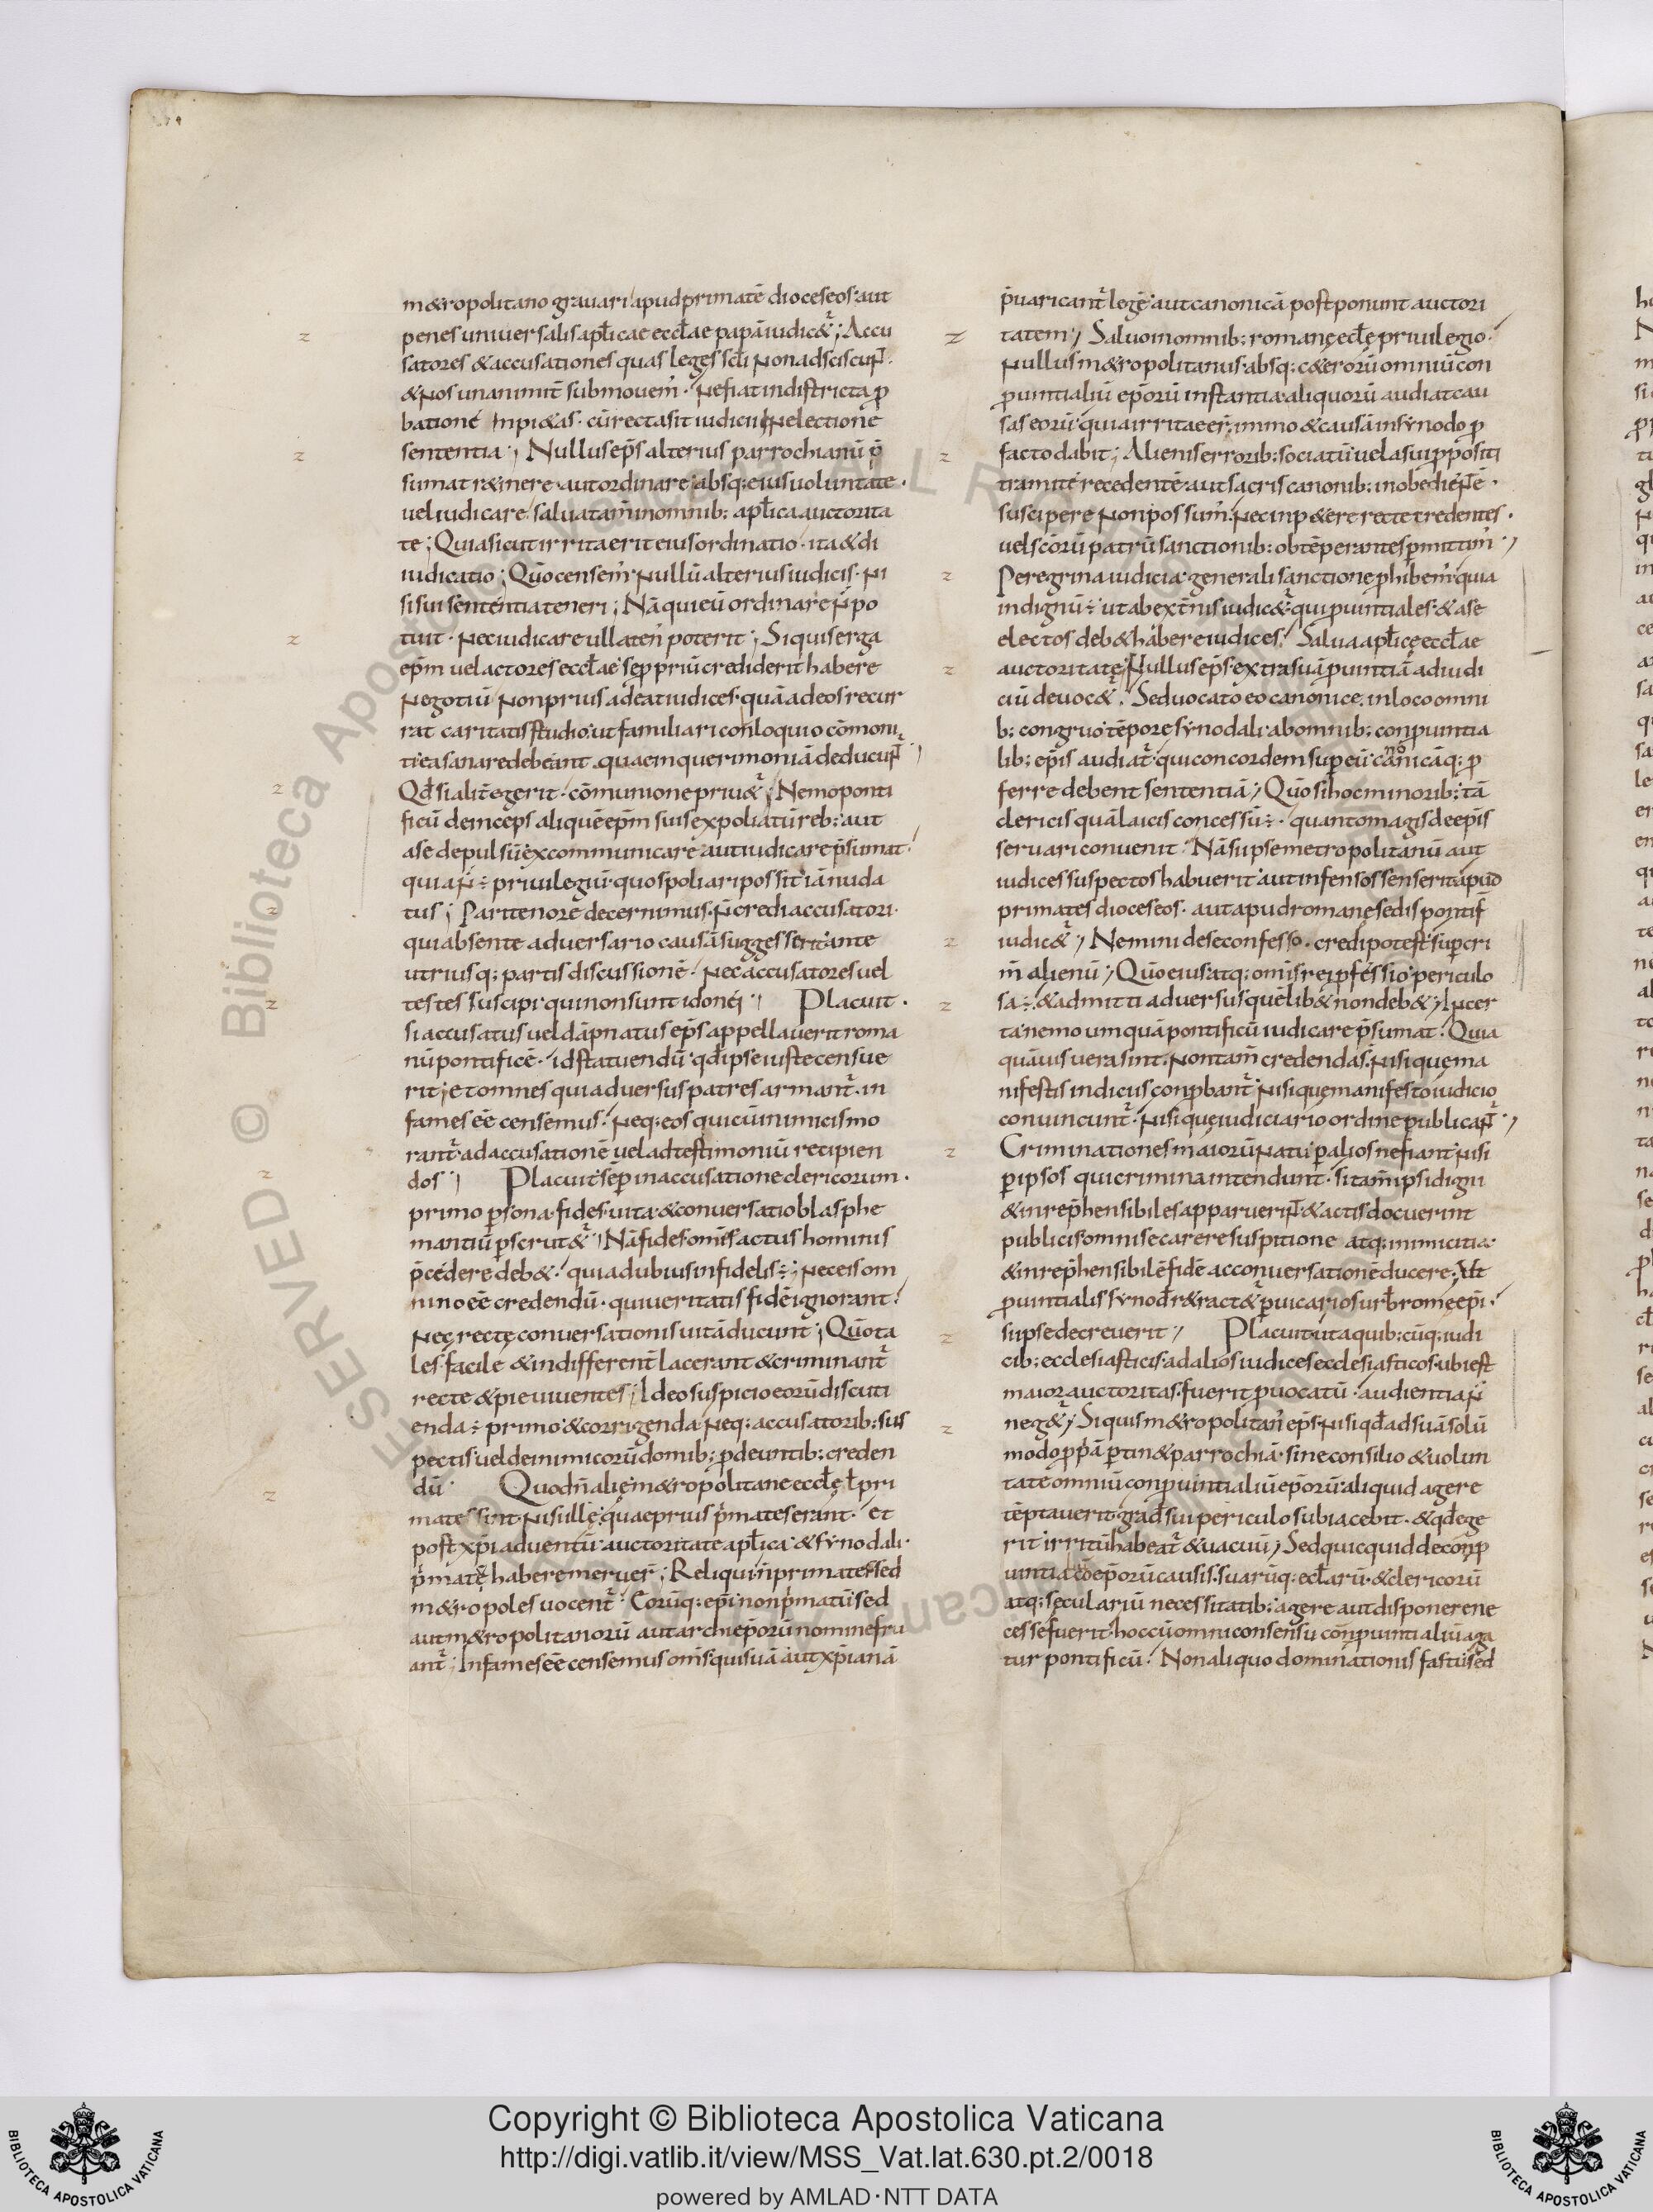 m&ropolitano grauari apud primatē dioceseos· aut
penes uniuersalis apl̄icae eccl̄ae papā iudic&ur; Accu
satores & accusationes quas leges scl̄i non adsciscunt·
& nos unanimit̄ submouem̄· Ne fiat indistricta p̄
batione inpi&as· cū recta sit iudicii in electione
sententia; Nullus ep̄s alterius parrochianū p̄
sumat r&inere· aut ordinare absq; eius uoluntate·
uel iudicare· salua tam̄ in omnib; apl̄ica auctorita
te; Quia sicut irrita erit eius ordinatio· ita & di
iudicatio; Quō censem̄ nullū alterius iudicis· ni
si sui sententia teneri; Nā qui eū ordinare n̄ po
tuit· nec iudicare ullaten̄ poterit; Si quis erga
ep̄m uel actores eccl̄ae· se ppriū crediderit habere
negotiū· non prius adeat iudices· quā ad eos recur
rat caritatis studio· ut familiari conloquio cōmoni
ti· ea sanare debeant· quae in querimoniā deducunt̄
Qd̄ si alit̄ egerit· cōmunione priu&ur; Nemo ponti
ficū deinceps aliquē ep̄m suis expoliatū reb;· aut
a sede pulsū excommunicare aut iudicare p̄sumat·
quia n̄ ÷ priuilegiū· quo spoliari possit iā nuda
tus; Pari tenore decernimus· n̄ credi accusatori·
qui absente aduersario causā suggesserit· ante
utriusq; partis discussionē· Nec accusatores uel
testes suscipi· qui non sunt idonei· Placuit·
si accusatus uel dāpnatus ep̄s appellauerit roma
nū pontificē· id statuendū· qd̄ ipse iuste censue
rit; et omnes qui aduersus patres armant̄· in
fames eē censemus· Neq; eos qui cū inimicis mo
rant̄· ad accusationē uel ad testimoniū recipien
dos· Placuit· semp in accusatione clericorum·
primo psona· fides· uita· & conuersatio blasphe
mantiū pscrut&ur· Nā fides om̄s actus hominis
p̄cedere deb&· quia dubius in fide infidelis ÷; Nec eis om
nino eē credendū· qui ueritatis fidē ignorant·
Nec rectę conuersationis uitā ducunt; Quō ta
les· facile & indifferent̄ lacerant & criminant̄
recte & pie uiuentes; Ideo suspicio eorū discuti
enda ÷ primo· & corrigenda· Neq; accusatorib; sus
pectis· uel de inimicorū domib; pdeuntib; creden
dū· Quod n̄ alię m&ropolitane eccl̄ę ł pri
mates sint· nisi illę· quae prius p̄mates erant· et
post xp̄i aduentū· auctoritate apl̄ica· & synodali·
p̄matē habere meruer̄; Reliqui n̄ primates· sed
m&ropoles uocent̄· Eorūq; ep̄i· non p̄matū· sed
aut m&ropolitanorū aut archiep̄orū nomine fru
ant̄; Infames eē censemus om̄s· qui suā aut xp̄ianā
p̄uaricant̄ legē· aut canonicā postponunt auctori
tatem· Saluo in omnib; romanę eccl̄ę priuilegio·
Nullus m&ropolitanus· absq; c&erorū omniū con
prouintialiū ep̄orū instantia· aliquorū audiat cau
sas eorū· quia irritae er̄· immo & causā in synodo p
facto dabit; Alienis errorib; sociatū· uel a sui ppositi
tramite recedentē· aut sacris canonib; inobedientē·
suscipere non possum̄· Nec inp&ere recte credentes·
uel sc̄orū patrū sanctionib; obtēperantes pmittim̄·
Peregrina iudicia· generali sanctione phibem̄· quia
indignū ÷ ut ab ext̄nis iudic&ur· qui puintiales· & a se
electos deb& habere iudices· Salua apl̄icę eccl̄ae
auctoritatę· Nullus ep̄s· extra suā puintiā ad iudi
ciū deuoc&· Sed uocato eo canonice· in loco omni
b; congruo· tēpore synodali· ab omnib; conpuintia
lib; ep̄is audiat̄· qui concordem sup eū· canonicāq; p
ferre debent sententiā· Quō si hoc minorib; tā
clericis quā laicis concessū ÷· quanto magis de ep̄is
seruari conuenit· Nā si ipse metropolitanū aut
iudices suspectos habuerit· aut infensos senserit· apud
primates dioceseos· aut apud romanę sedis pontif̄
iudic&ur· Nemini de se confesso· credi potest sup cri
m̄ alienū· Quō eius atq; om̄is rei pfessio· periculo
sa ÷· & admitti aduersus quēlib& non deb&· Incer
ta nemo umquā pontificū iudicare p̄sumat· Quia
quāuis uera sint· non tam̄ credenda s̄· nisi quę ma
nifestis indiciis conpbant̄· Nisi quę manifesto iudicio
conuincunt̄· Nisi quę iudiciario ordine publicant̄·
Criminationes maiorū natu p alios ne fiant nisi
p ipsos qui crimina intendunt· si tam̄ ipsi digni
& inrep̄hensibiles apparuerint· & actis docuerint
publicis omni se carere suspitione atq; inimicitia·
& inrep̄hensibilē fidē ac conuersationē ducere; Ut
puintialis synod̄ r&ract&ur p uicarios urb̄ romę ep̄i·
si ipse decreuerit· Placuit ut a quib; cūq; iudi
cib; ecclesiasticis· ad alios iudices ecclesiasticos· ubi est
maior auctoritas· fuerit puocatū· audientia n̄
neg&ur· Si quis m&ropolitan̄ ep̄s· nisi qd̄ ad suā solū
modo pp̄ā ptin& parrochiā· sine consilio & uolun
tate omniū conpuintialiū ep̄orū· aliquid agere
tēptauerit· grad̄ sui periculo subiacebit· & qd̄ ege
rit· irritū habeat̄ & uacuū· Sed quicquid de conp
uintialiū ep̄orū causis· suarūq; eccl̄arū· & clericorū
atq; seculariū necessitatib; agere aut disponere ne
cesse fuerit· hoc cū omni consensu conpuintialiū aga
tur pontificū· Non aliquo dominationis fastu· sed
Copyright © Biblioteca Apostolica Vaticana
http://digi.vatlib.it/view/MSS_Vat.lat.630.pt.2/0018
powered by AMLAD·NTT DATA